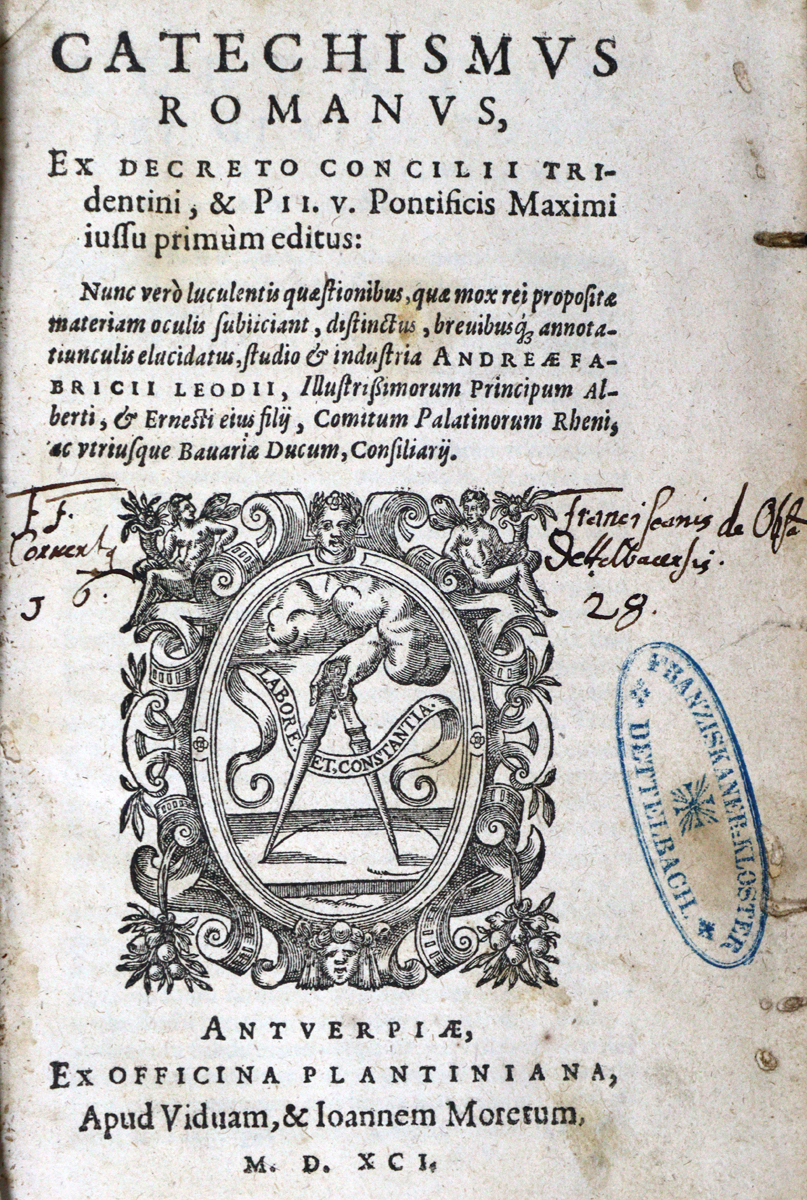 CATECHISMVS
ROMANVS,
EX DECRETO CONCILII TRI-
dentini, & PII. V. Pontificis Maximi
iuſſu primùm editus:
Nunc verò luculentis quæſtionibus, quæ mox rei propoſitæ
materiam oculis ſubiiciant, diſtinctus, breuibusq́; annota-
tiunculis elucidatus, ſtudio & induſtria ANDREÆ FA-
BRICII LEODII, Illuſtrißimorum Principum Al-
berti, & Erneſti eius filij, Comitum Palatinorum Rheni,
ac vtriuſque Bauariæ Ducum, Conſiliarij.
FF.
Franciſcanis de
36.
28.
LABORE ET CONSTANTIA.
FRANZISKANER-KLOSTER
DETTELBACH.
ANTVERPIÆ,
EX OFFICINA PLANTINIANA,
Apud Viduam, & Ioannem Moretum,
M. D. XCI.